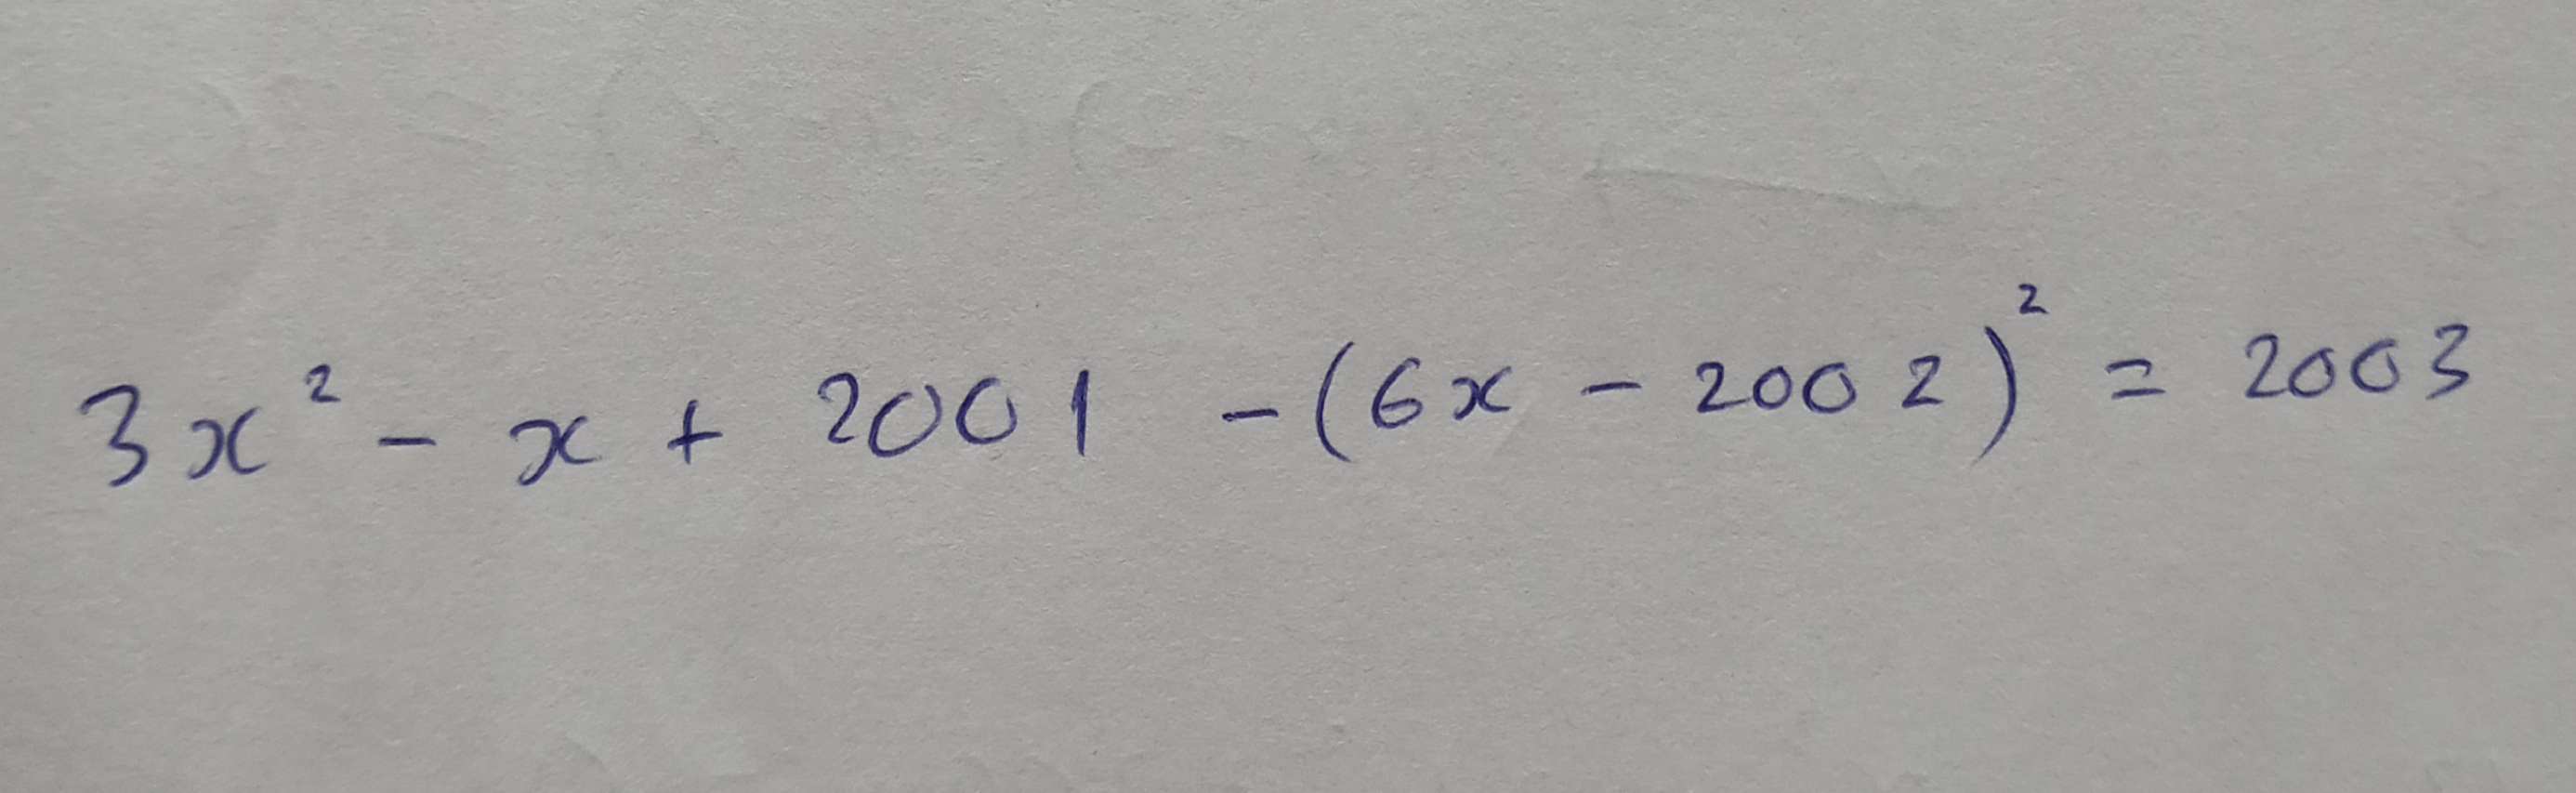 3x² - x + 2001 - (6x - 2002)² = 2003